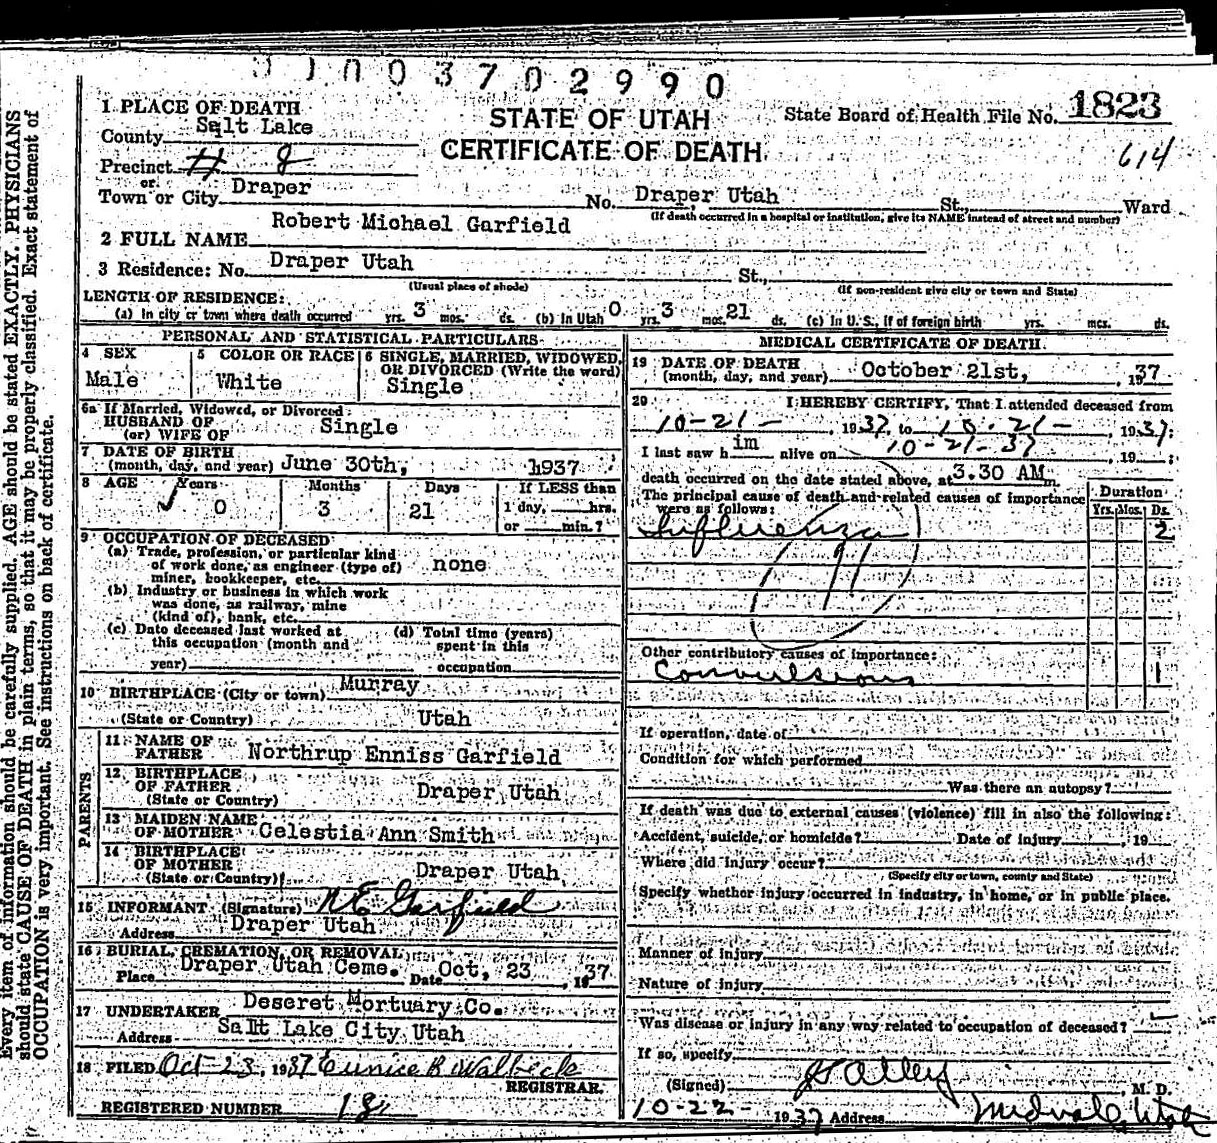 003702990
1 PLACE OF DEATH
STATE OF UTAH
State Board of Health File No. 1823
County Salt Lake
CERTIFICATE OF DEATH
614
Precinct # 8
or
Town or City Draper No. Draper Utah St., Ward
(If death occurred in a hospital or institution, give its NAME instead of street and number)
2 FULL NAME Robert Michael Garfield
3 Residence: No. Draper Utah St.,
(Usual place of abode) (If non-resident give city or town and State)
LENGTH OF RESIDENCE:
(a) In city or town where death occurred yrs. 3 mos. ds. (b) In Utah 0 yrs. 3 mos. 21 ds. (c) In U. S., if of foreign birth yrs. mos. ds.
PERSONAL AND STATISTICAL PARTICULARS
4 SEX Male
5 COLOR OR RACE White
6 SINGLE, MARRIED, WIDOWED, OR DIVORCED (Write the word) Single
6a If Married, Widowed, or Divorced
HUSBAND OF
(or) WIFE OF Single
7 DATE OF BIRTH
(month, day, and year) June 30th, 1937
8 AGE Years 0 Months 3 Days 21 If LESS than
1 day, hrs.
or min.?
9 OCCUPATION OF DECEASED
(a) Trade, profession, or particular kind
of work done, as engineer (type of)
miner, bookkeeper, etc. none
(b) Industry or business in which work
was done, as railway, mine
(kind of), bank, etc.
(c) Date deceased last worked at
this occupation (month and
year)
(d) Total time (years)
spent in this
occupation
10 BIRTHPLACE (City or town) Murray
(State or Country) Utah
PARENTS
11 NAME OF
FATHER Northrup Enniss Garfield
12 BIRTHPLACE
OF FATHER
(State or Country) Draper Utah
13 MAIDEN NAME
OF MOTHER Celestia Ann Smith
14 BIRTHPLACE
OF MOTHER
(State or Country) Draper Utah
15 INFORMANT (Signature) N E Garfield
Address Draper Utah
16 BURIAL, CREMATION, OR REMOVAL
Place Draper Utah Ceme. Date Oct, 23, 1937
17 UNDERTAKER Deseret Mortuary Co.
Address Salt Lake City Utah
18 FILED Oct 23, 1937 Eunice B Walbeck
REGISTRAR.
REGISTERED NUMBER 18
MEDICAL CERTIFICATE OF DEATH
19 DATE OF DEATH
(month, day, and year) October 21st, 1937
20 I HEREBY CERTIFY, That I attended deceased from
10-21-, 1937, to 10-21-, 1937;
I last saw him alive on 10-21-37, 19 ;
death occurred on the date stated above, at 3.30 AM m.
The principal cause of death and related causes of importance
were as follows:
Duration
Yrs. Mos. Ds.
Influenza 2
Other contributory causes of importance:
Convulsions 1
If operation, date of
Condition for which performed
Was there an autopsy?
If death was due to external causes (violence) fill in also the following:
Accident, suicide, or homicide? Date of injury , 19
Where did injury occur?
(Specify city or town, county and State)
Specify whether injury occurred in industry, in home, or in public place.
Manner of injury
Nature of injury
Was disease or injury in any way related to occupation of deceased?
If so, specify
(Signed) Alley M. D.
10-22- 1937 Address Midvale, Utah
Every item of information should be carefully supplied. AGE should be stated EXACTLY. PHYSICIANS
should state CAUSE OF DEATH in plain terms, so that it may be properly classified. Exact statement of
OCCUPATION is very important. See instructions on back of certificate.